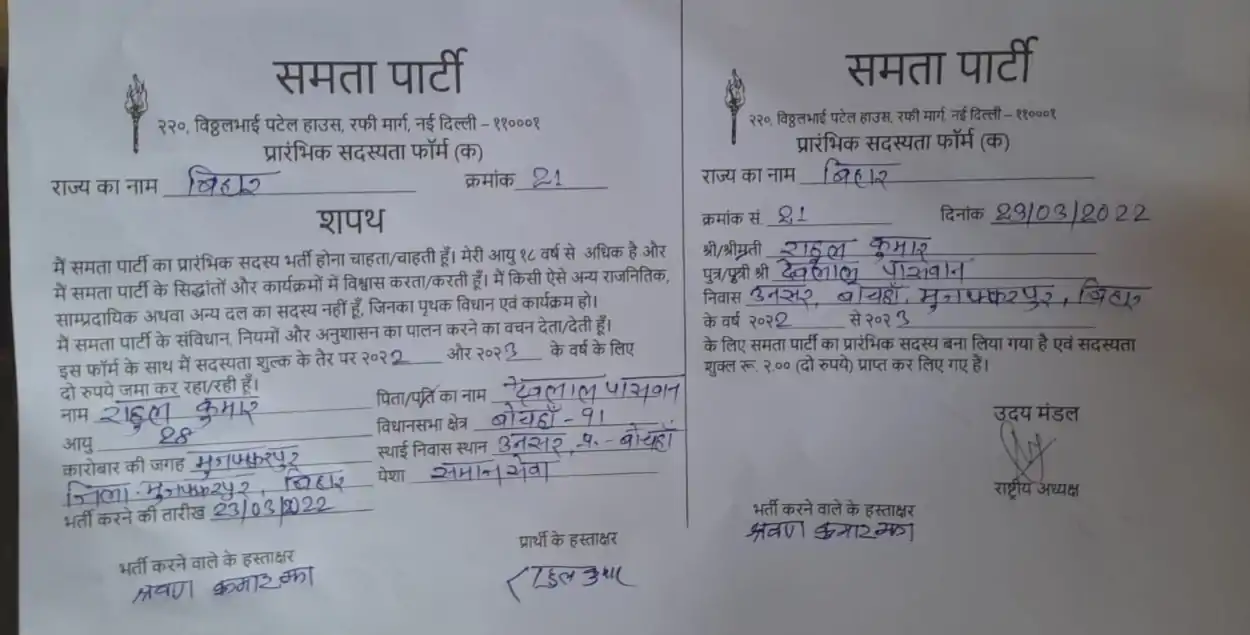 समता पार्टी
२२०, विठ्ठलभाई पटेल हाउस, रफी मार्ग, नई दिल्ली – ११०००१
प्रारंभिक सदस्यता फॉर्म (क)
राज्य का नाम बिहार क्रमांक 21
शपथ
मैं समता पार्टी का प्रारंभिक सदस्य भर्ती होना चाहता/चाहती हूँ। मेरी आयु १८ वर्ष से अधिक है और
मैं समता पार्टी के सिद्धांतों और कार्यक्रमों में विश्वास करता/करती हूँ। मैं किसी ऐसे अन्य राजनितिक,
साम्प्रदायिक अथवा अन्य दल का सदस्य नहीं हूँ, जिनका पृथक विधान एवं कार्यक्रम हो।
मैं समता पार्टी के संविधान, नियमों और अनुशाशन का पालन करने का वचन देता/देती हूँ।
इस फॉर्म के साथ मैं सदस्यता शुल्क के तैर पर २०२2 और २०२3 के वर्ष के लिए
दो रुपये जमा कर रहा/रही हूँ।
नाम राहुल कुमार
पिता/पति का नाम देवलाल पासवान
आयु 28
विधानसभा क्षेत्र बोचहाँ - 91
कारोबार की जगह मुजफ्फरपुर
स्थाई निवास स्थान उनसर, प.- बोचहाँ
जिला- मुजफ्फरपुर, बिहार
पेशा समाज सेवा
भर्ती करने की तारीख 23/03/2022
भर्ती करने वाले के हस्ताक्षर
श्रवण कुमार झा
प्रार्थी के हस्ताक्षर
राहुल कुमार
समता पार्टी
२२०, विठ्ठलभाई पटेल हाउस, रफी मार्ग, नई दिल्ली – ११०००१
प्रारंभिक सदस्यता फॉर्म (क)
राज्य का नाम बिहार
क्रमांक सं. 21 दिनांक 23/03/2022
श्री/श्रीमती राहुल कुमार
पुत्र/पुत्री श्री देवलाल पासवान
निवास उनसर, बोचहाँ, मुजफ्फरपुर, बिहार
के वर्ष २०२2 से २०२3
के लिए समता पार्टी का प्रारंभिक सदस्य बना लिया गया है एवं सदस्यता
शुक्ल रू. २.०० (दो रुपये) प्राप्त कर लिए गए हैं।
उदय मंडल
राष्ट्रीय अध्यक्ष
भर्ती करने वाले के हस्ताक्षर
श्रवण कुमार झा